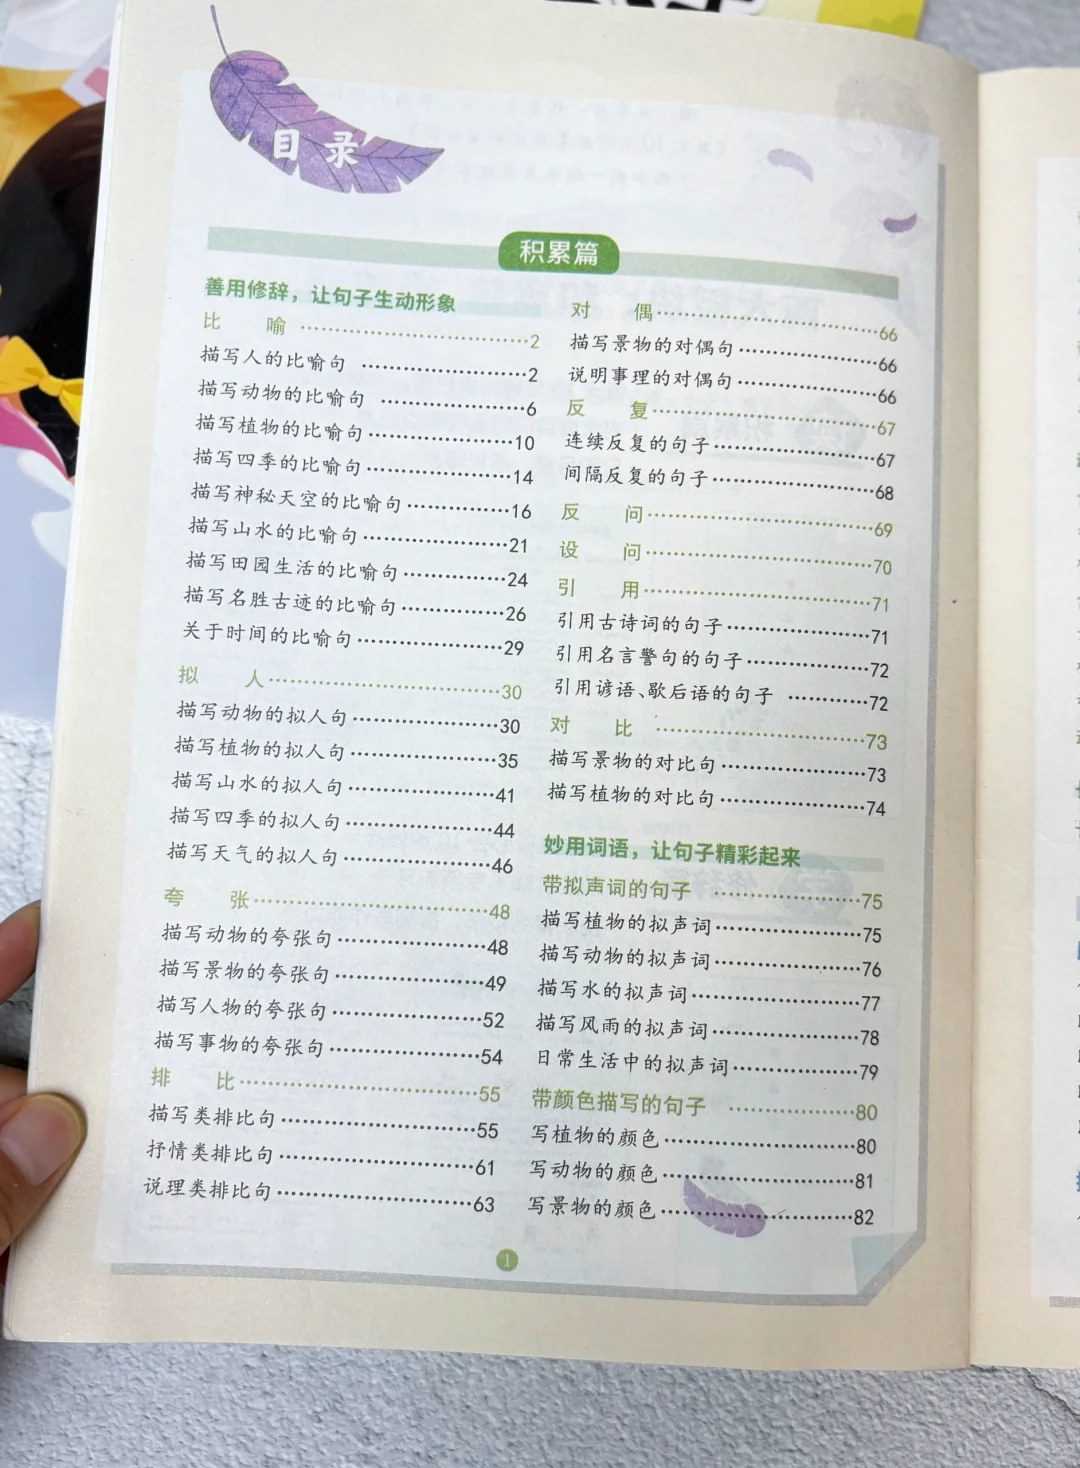 目录
积累篇
善用修辞，让句子生动形象
比 喻 ……………………2
描写人的比喻句 ……………………2
描写动物的比喻句 ……………………6
描写植物的比喻句……………………10
描写四季的比喻句……………………14
描写神秘天空的比喻句……………………16
描写山水的比喻句……………………21
描写田园生活的比喻句……………………24
描写名胜古迹的比喻句……………………26
关于时间的比喻句……………………29
拟 人……………………30
描写动物的拟人句……………………30
描写植物的拟人句……………………35
描写山水的拟人句……………………41
描写四季的拟人句……………………44
描写天气的拟人句……………………46
夸 张……………………48
描写动物的夸张句……………………48
描写景物的夸张句……………………49
描写人物的夸张句……………………52
描写事物的夸张句……………………54
排 比……………………55
描写类排比句……………………55
抒情类排比句……………………61
说理类排比句……………………63
对 偶……………………66
描写景物的对偶句……………………66
说明事理的对偶句……………………66
反 复……………………67
连续反复的句子……………………67
间隔反复的句子……………………68
反 问……………………69
设 问……………………70
引 用……………………71
引用古诗词的句子……………………71
引用名言警句的句子……………………72
引用谚语、歇后语的句子 ……………………72
对 比 ……………………73
描写景物的对比句……………………73
描写植物的对比句……………………74
妙用词语，让句子精彩起来
带拟声词的句子 ……………………75
描写植物的拟声词……………………75
描写动物的拟声词……………………76
描写水的拟声词……………………77
描写风雨的拟声词……………………78
日常生活中的拟声词……………………79
带颜色描写的句子 ……………………80
写植物的颜色……………………80
写动物的颜色……………………81
写景物的颜色……………………82
1